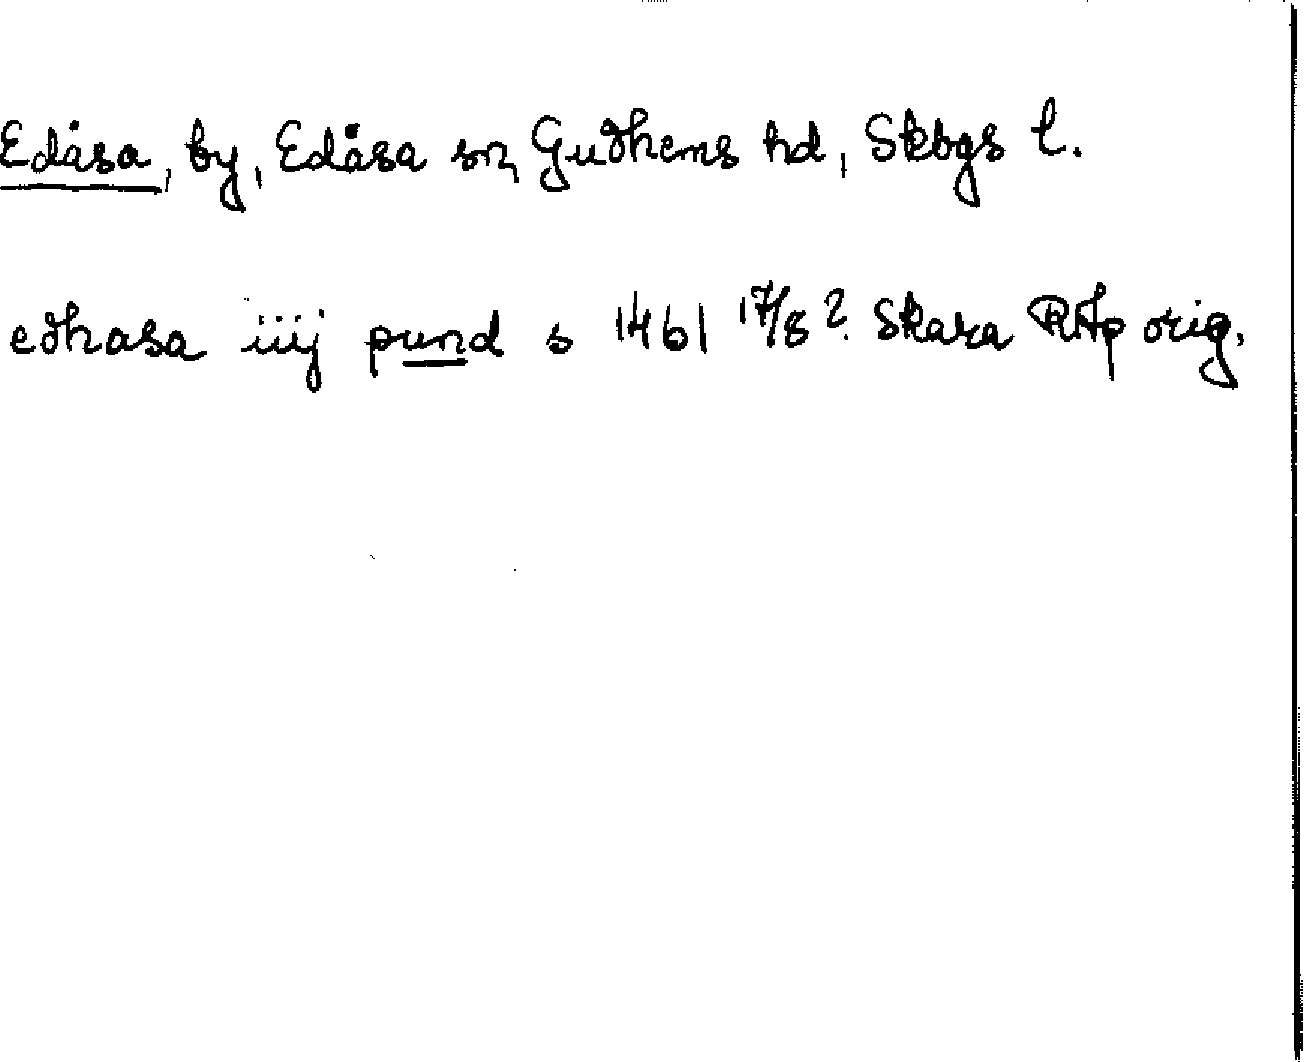 Edåsa, by, Edåsa sn, Gudhems hd, Skbgs l.
edhasa iiij pund s 1461 17/8? Skara RAp orig.